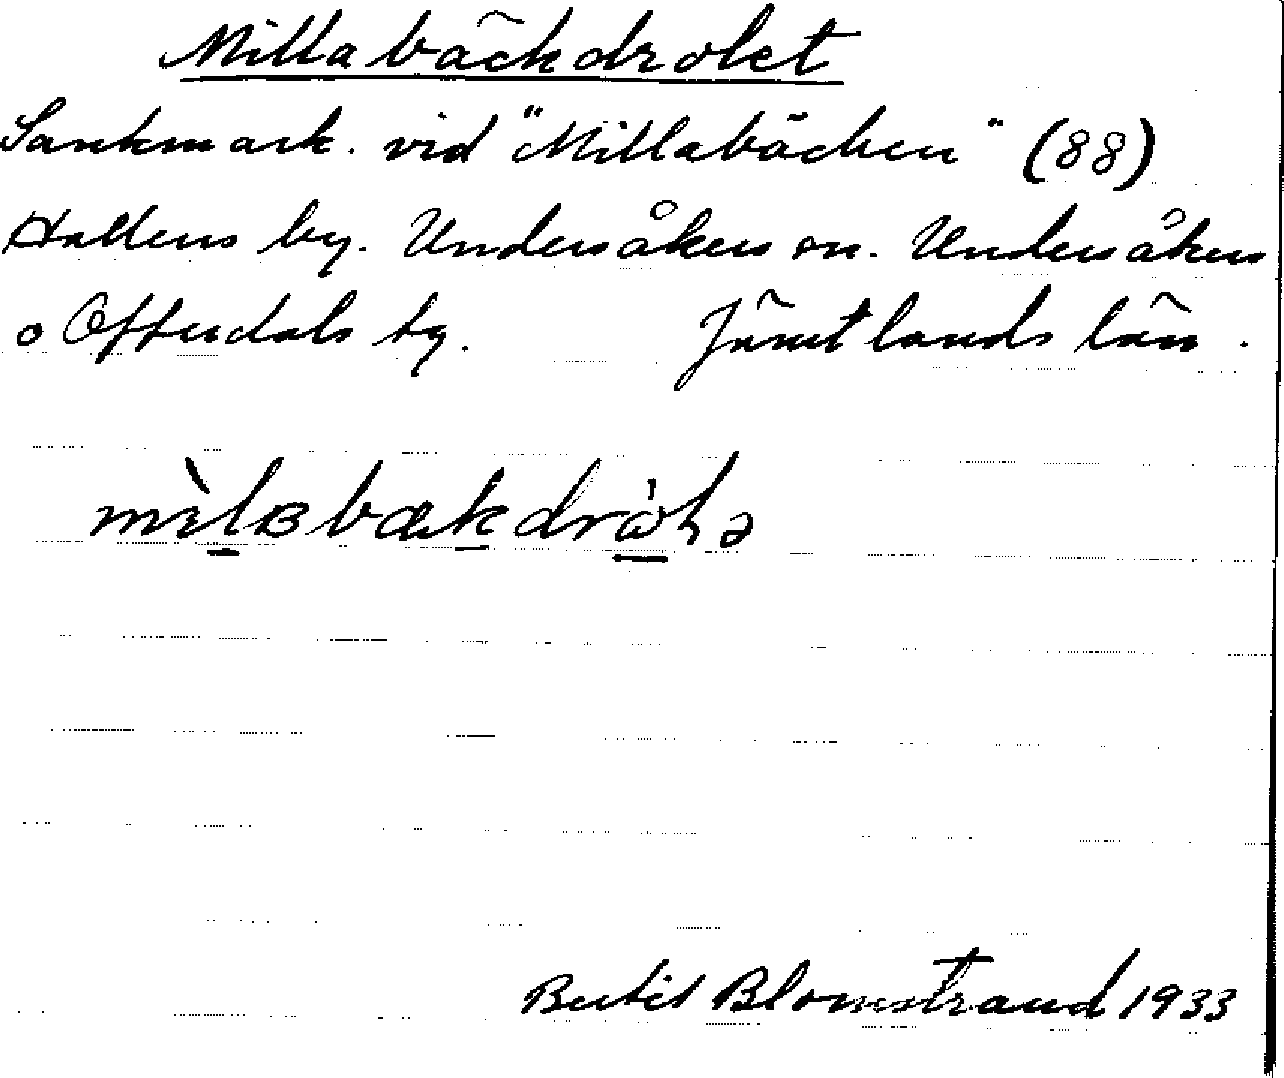 Millabäckdrolet
Sankmark. vid "Millabäcken" (88)
Hallens by. Undersåkers sn. Undersåkers
o Offerdals tg. Jämtlands län.
mìlabækdròlə
Bertil Blomstrand 1933